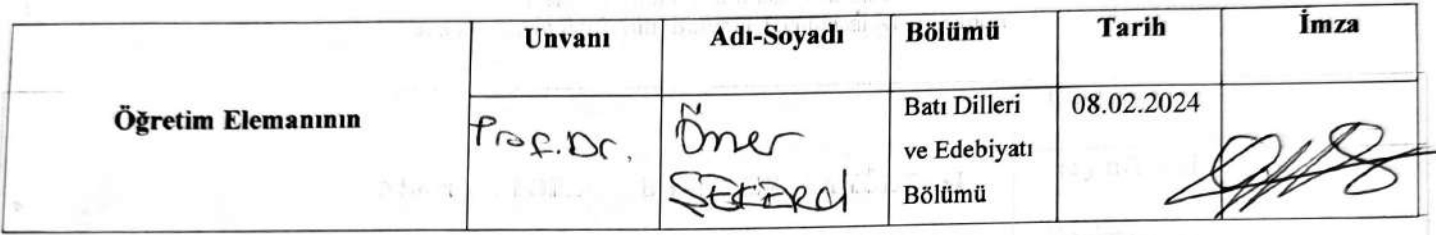 Unvanı Adı-Soyadı Bölümü Tarih İmza
Öğretim Elemanının
Prof.Dr. Ömer
ŞEKERCİ
Batı Dilleri
ve Edebiyatı
Bölümü
08.02.2024